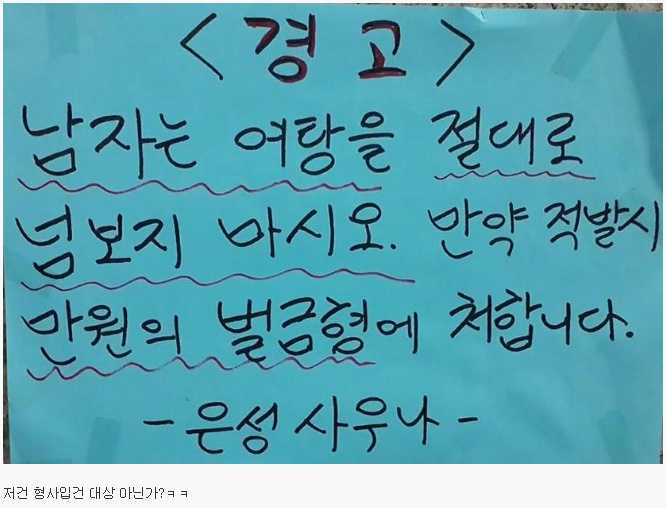 <경고>
남자는 여탕을 절대로
넘보지 마시오. 만약 적발시
만원의 벌금형에 처합니다.
- 은성 사우나 -
저건 형사입건 대상 아닌가?ㅋㅋ